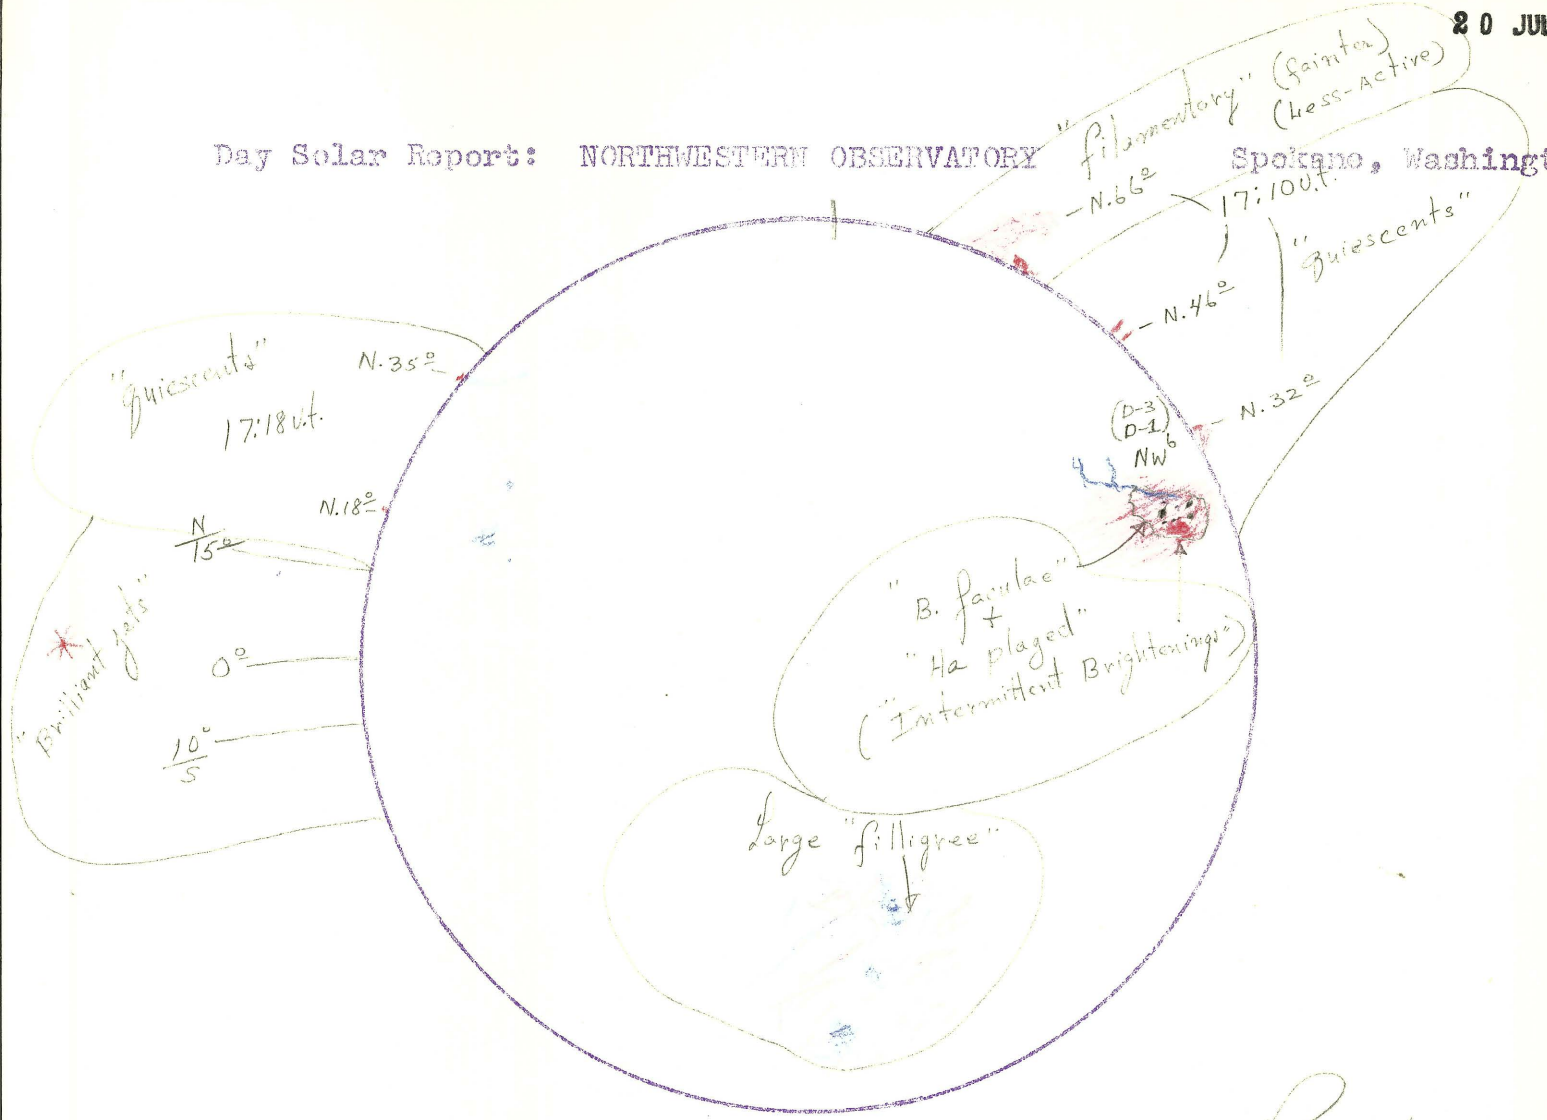 20 JU
Day Solar Report: NORTHWESTERN OBSERVATORY Spokane, Washingt
"filamentory" (fainter)
(Less-Active)
-N.66º
17:10U.t.
"Quiescents"
-N.46º
-N.32º
"Quiescents"
N.35º-
17:18u.t.
N.18º-
N
15º
"Brilliant jets"
0º
10º
S
(D-3
D-1)
NW6
"B. faculae"
+
"Ha plaged"
("Intermittent Brightenings")
Large "filligree"